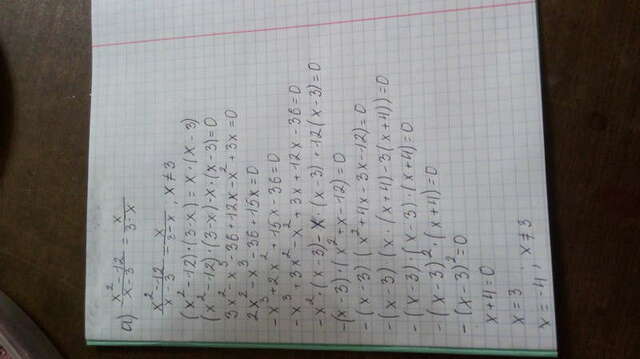 а) (x² - 12)/(x - 3) = x/(3 - x)
(x² - 12)/(x - 3) = x/(3 - x), x ≠ 3
(x² - 12) · (3 - x) = x · (x - 3)
(x² - 12) · (3 - x) - x · (x - 3) = 0
3x² - x³ - 36 + 12x - x² + 3x = 0
2x² - x³ - 36 + 15x = 0
-x³ + 2x² + 15x - 36 = 0
-x³ + 3x² - x² + 3x + 12x - 36 = 0
-x² · (x - 3) - x · (x - 3) + 12(x - 3) = 0
-(x - 3) · (x² + x - 12) = 0
-(x - 3) (x² + 4x - 3x - 12) = 0
-(x - 3) (x · (x + 4) - 3(x + 4)) = 0
-(x - 3) · (x - 3) · (x + 4) = 0
-(x - 3)² · (x + 4) = 0
-(x - 3)² = 0
x + 4 = 0
x = 3
x = -4 ; x ≠ 3